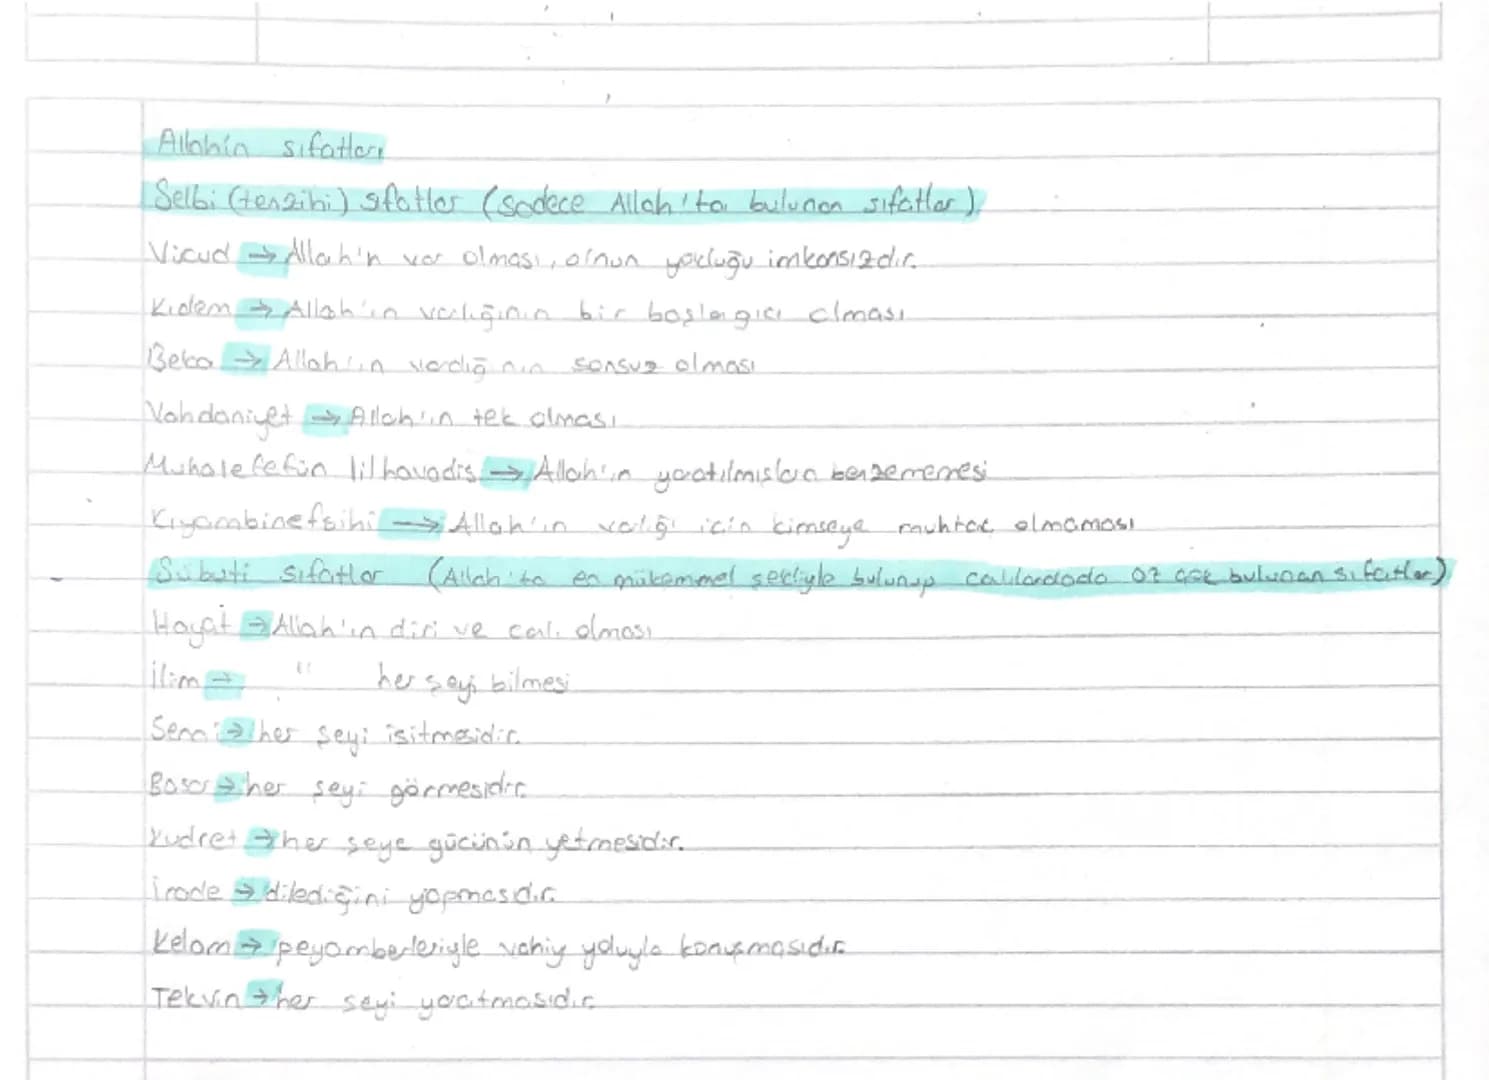 Allahin sıfatları
Selbi (tenzihi) sfatlar (sadece Allah'ta bulunan sıfatlar)
Vicud → Allah'n var olması, o'nun yokluğu imkansızdır.
Kıdem → Allah'ın varlığının bir başlangıcı olması
Beka → Allah'ın varlığının sonsuz olması
Vahdaniyet → Allah'ın tek olması
Muhalefetün lilhavadis → Allah'ın yaratılmışlara benzememesi
Kıyambinefsihi → Allah'ın varlığı için kimseye muhtaç olmaması
Subuti sıfatlar (Allah'ta en mükemmel şekliyle bulunup canlılardada az çok bulunan sıfatlar)
Hayat → Allah'ın diri ve canlı olması
İlim → " her şeyi bilmesi
Semi → her şeyi işitmesidir.
Basar → her şeyi görmesidir.
Kudret → her şeye gücünün yetmesidir.
İrade → dilediğini yapmasıdır.
Kelam → peygamberleriyle vahiy yoluyla konuşmasıdır.
Tekvin → her şeyi yaratmasıdır.